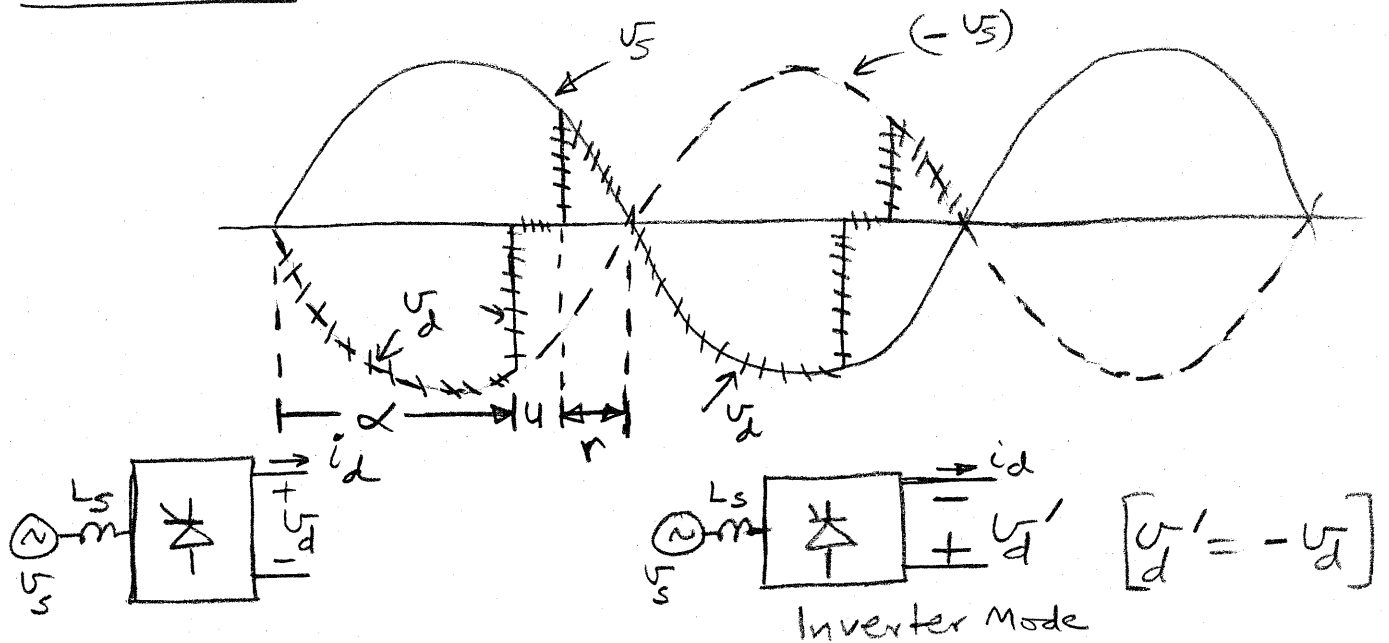 v_s
(- v_s)
v_d
v_d
α u r
i_d
L_s
+
v_d
-
v_s
i_d
L_s
-
v_d'
+
v_s
[v_d' = - v_d]
Inverter Mode